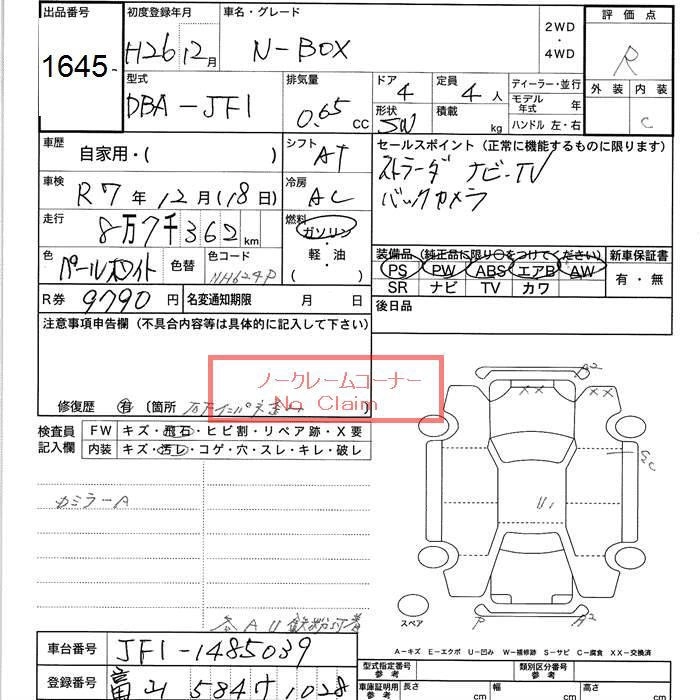 出品番号 初度登録年月 車名・グレード 2WD・4WD 評価点
1645- H26 12月 N-BOX R
型式 排気量 ドア 定員 ディーラー・並行 外装 内装
DBA-JF1 0.65 cc 4 4 人 モデル年式 年 C
形状 5W 積載 kg ハンドル 左・右
車歴 自家用・( ) シフト AT セールスポイント (正常に機能するものに限ります)
車検 R7年12月(18日) 冷房 AC ストラーダ ナビ・TV
バックカメラ
走行 8万7千362km 燃料 ガソリン・軽油・( )
装備品 (純正品に限り○をつけてください) 新車保証書
色 パールホワイト 色替 色コード NH624P PS PW ABS エアB AW 有・無
SR ナビ TV カワ
R券 9790 円 名変通知期限 月 日 後日品
注意事項申告欄 (不具合内容等は具体的に記入して下さい)
ノークレームコーナー
No Claim
修復歴 有 (箇所
検査員記入欄 FW キズ・飛石・ヒビ割・リペア跡・X要
内装 キズ・汚レ・コゲ・穴・スレ・キレ・破レ
カミラーA
A2
XX
XX
U1
スペア P A2
A-キズ E-エクボ U-凹み W-補修跡 S-サビ C-腐食 XX-交換済
車台番号 JF1-1485039
登録番号 富山 584 1028
型式指定番号 参考 類別区分番号 参考
車庫証明用 参考 長さ cm 幅 cm 高さ cm